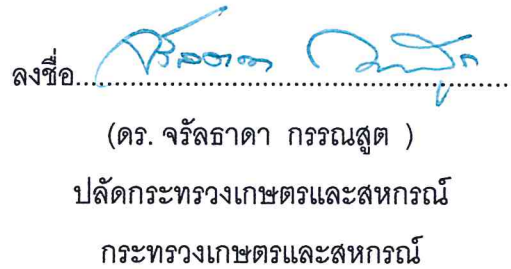 ลงชื่อ..........................................................
(ดร. จรัลธาดา กรรณสูต )
ปลัดกระทรวงเกษตรและสหกรณ์
กระทรวงเกษตรและสหกรณ์